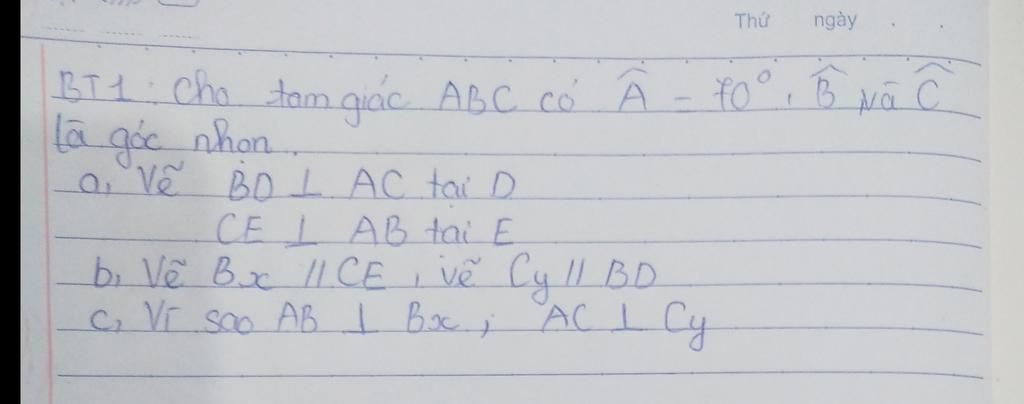 Thứ ngày . .
BT1: Cho tam giác ABC có Â = 70°, B̂ và Ĉ
là góc nhọn.
a, Vẽ BD ⊥ AC tại D
CE ⊥ AB tại E
b, Vẽ Bx // CE, vẽ Cy // BD
c, Vì sao AB ⊥ Bx; AC ⊥ Cy